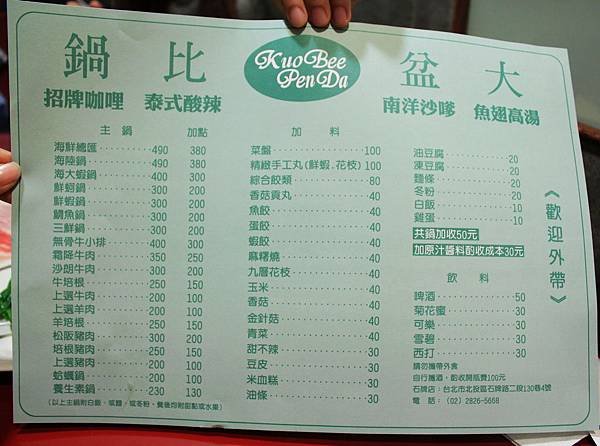 鍋比盆大
KuoBee
PenDa
招牌咖哩 泰式酸辣
南洋沙嗲 魚翅高湯
主鍋 加點
海鮮總匯 490 380
海陸鍋 490 380
海大蝦鍋 400 300
鮮蚵鍋 300 200
鮮蝦鍋 300 200
鯛魚鍋 300 200
三鮮鍋 300 200
無骨牛小排 400 300
霜降牛肉 350 250
沙朗牛肉 300 200
牛培根 250 150
上選牛肉 200 100
上選羊肉 200 100
羊培根 250 150
松阪豬肉 300 200
培根豬肉 250 150
上選豬肉 200 100
蛤蠣鍋 200 100
養生素鍋 230 130
(以上主鍋附白飯，或麵，或冬粉，餐後均附甜點或水果)
加料
菜盤 100
精緻手工丸(鮮蝦.花枝) 100
綜合餃類 80
香菇貢丸 40
魚餃 40
蛋餃 40
蝦餃 40
麻糬燒 40
九層花枝 40
玉米 40
香菇 40
金針菇 40
青菜 40
甜不辣 30
豆皮 30
米血糕 30
油條 30
油豆腐 20
凍豆腐 20
麵條 20
冬粉 20
白飯 10
雞蛋 10
共鍋加收50元
加原汁醬料酌收成本30元
飲料
啤酒 50
菊花蜜 30
可樂 30
雪碧 30
西打 30
請勿攜帶外食
自行攜酒，酌收開瓶費100元
石牌店：台北市北投區石牌路二段130巷4號
電話：(02) 2826-5668
《歡迎外帶》